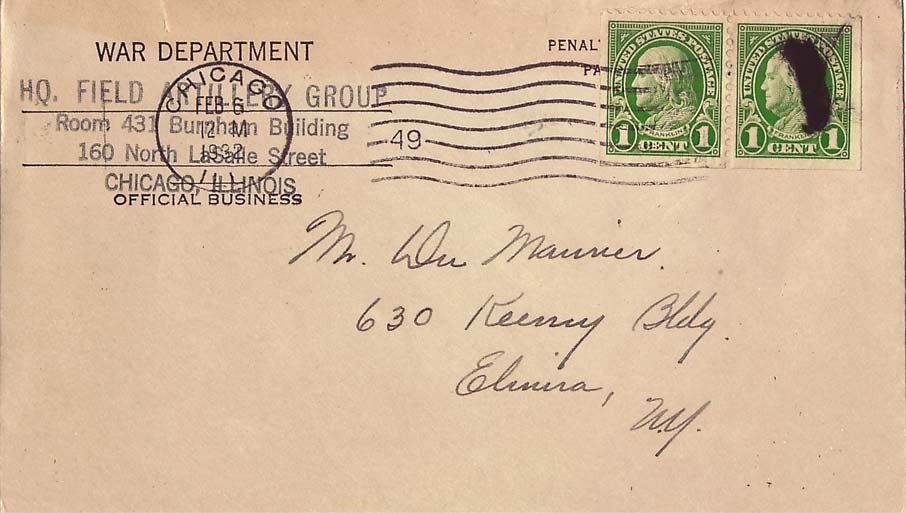 WAR DEPARTMENT
HQ. FIELD ARTILLERY GROUP
Room 431 Burnham Building
160 North LaSalle Street
CHICAGO, ILLINOIS
OFFICIAL BUSINESS
CHICAGO
FEB 6
12 M
1932
ILL.
49
PENAL
PA
UNITED STATES POSTAGE
FRANKLIN
1 CENT 1
UNITED STATES POSTAGE
FRANKLIN
1 CENT 1
Mr. Du Maurier.
630 Keeney Bldg.
Elmira,
N.Y.